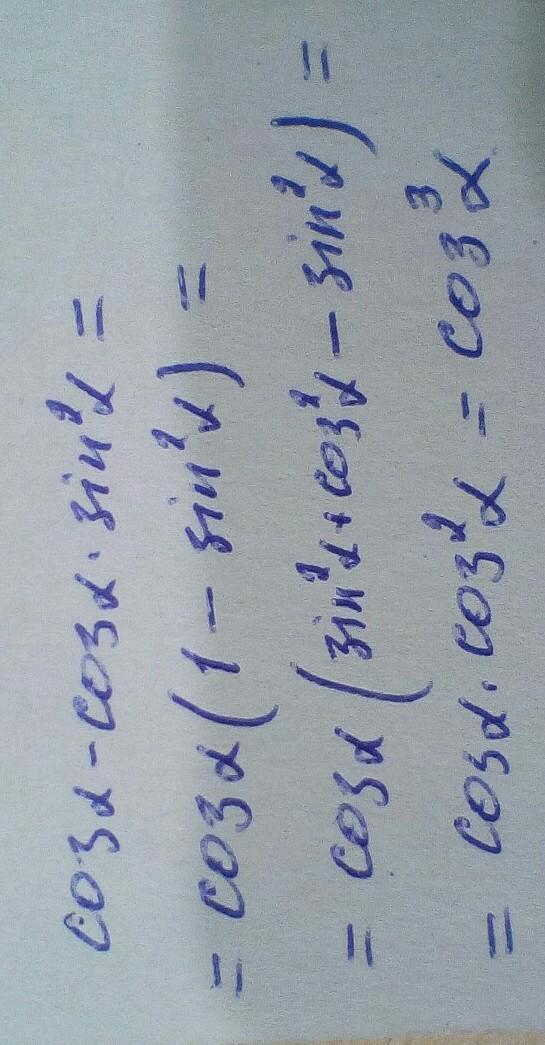 cosα - cosα · sin²α =
= cosα(1 - sin²α) =
= cosα(sin²α + cos²α - sin²α) =
= cosα · cos²α = cos³α